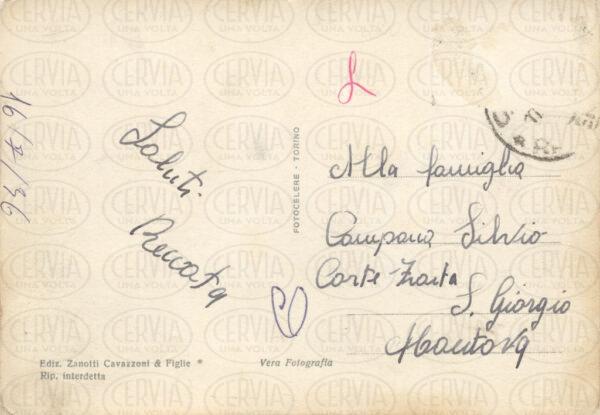 16/8/36
Saluti
Renata
Alla famiglia
Campana Silvio
Corte
S. Giorgio
Mantova
FOTOCELERE - TORINO
Ediz. Zanotti Cavazzoni & Figlie *
Rip. interdetta
Vera Fotografia
CERVIA
UNA VOLTA